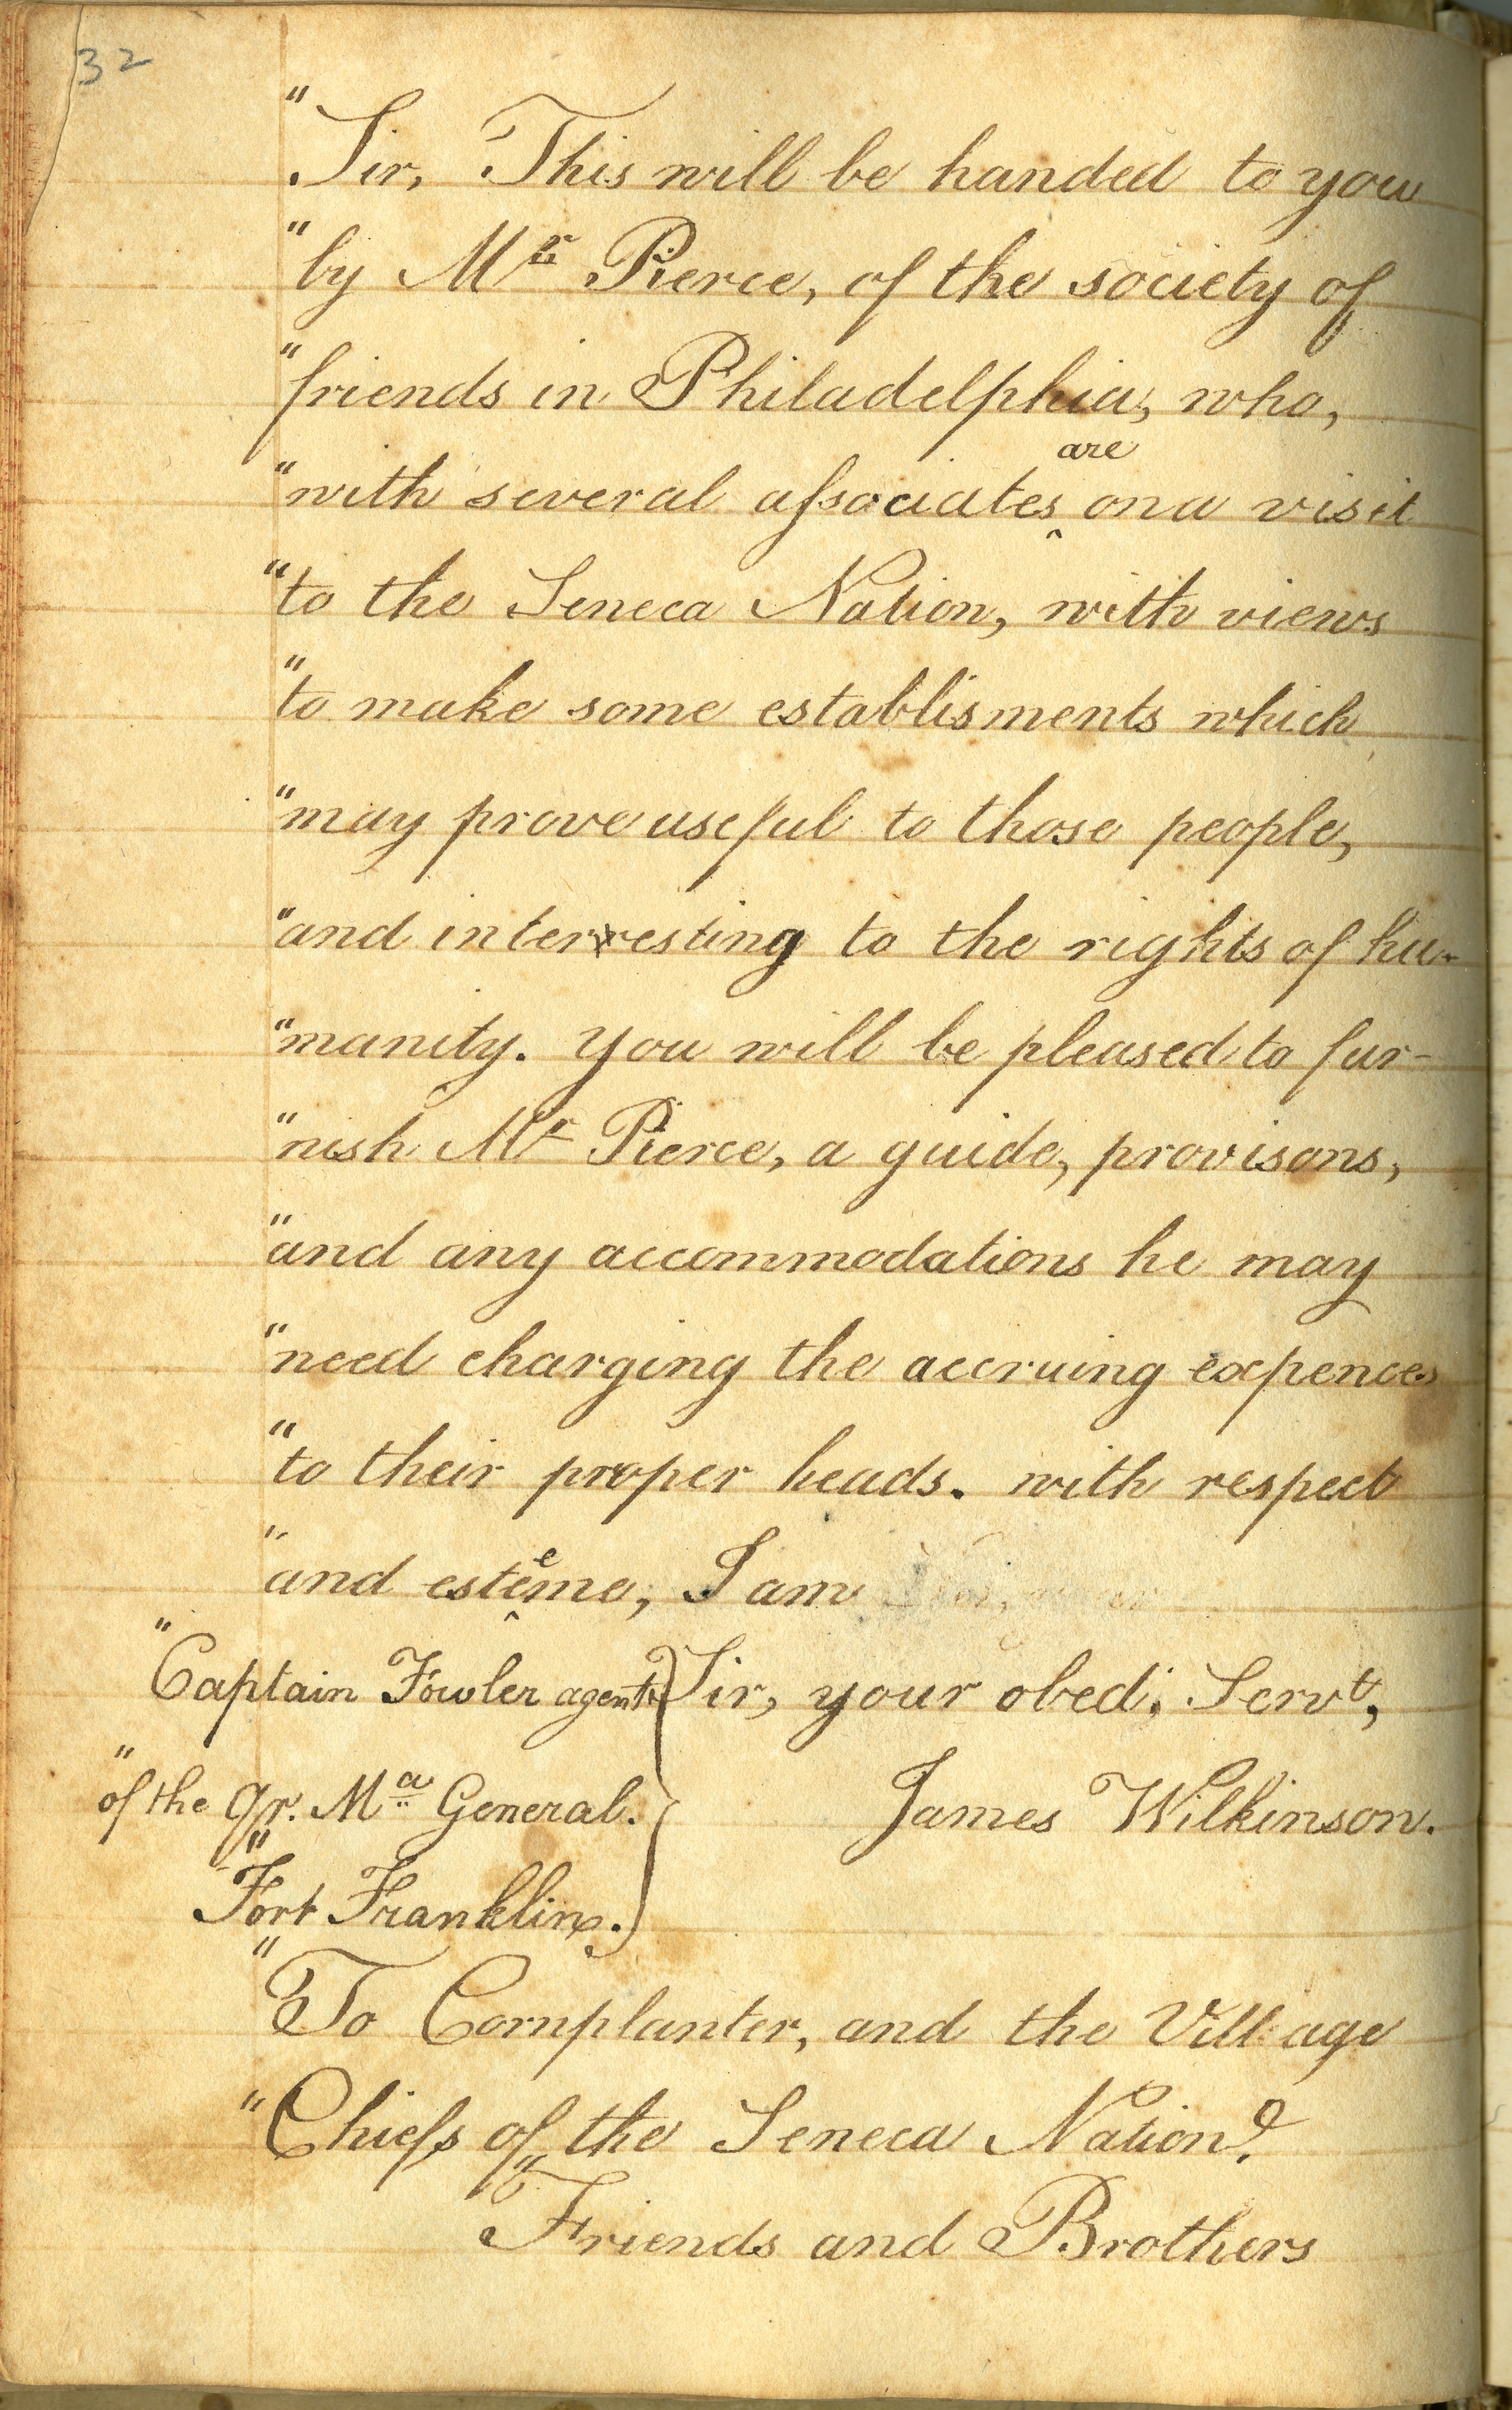 32
"Sir, This will be handed to you
"by Mr Pierce, of the society of
"friends in Philadelphia, who,
"with several aſsociates are on a visit
"to the Seneca Nation, with views
"to make some establisments which
"may prove useful to those people,
"and interresting to the rights of hu-
"manity. You will be pleased to fur-
"nish Mr Pierce, a guide, provisons,
"and any accommodations he may
"need charging the accruing expences
"to their proper heads. with respect
"and esteeme, I am
Sir, your obed; Servt,
James Wilkinson.
"Captain Fowler agent
"of the Qr. Ma General.
"Fort Franklin.
"To Cornplanter, and the Village
"Chiefs of the Seneca Nation
"Friends and Brothers